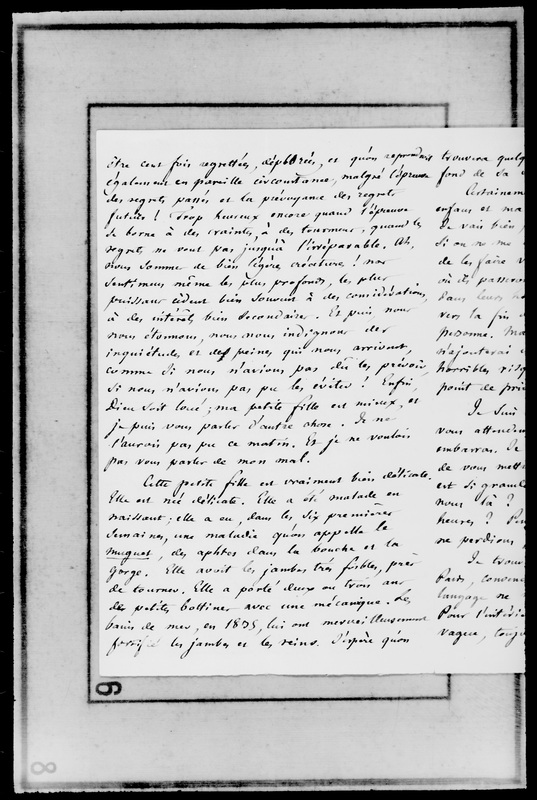 être cent fois regrettées, déplorées, et qu'on reprendrait
également en pareille circonstance, malgré l'épreuve
des regrets passés et la prévoyance des regrets
futurs ! Trop heureux encore quand l'épreuve
se borne à des craintes, à des tourmens, quand les
regrets ne vont pas jusqu'à l'irréparable. Ah,
nous somme de bien légères créatures ! nos
sentimens même les plus profonds, les plus
puissans cèdent bien souvent à des considérations,
à des intérêts bien secondaires. Et puis nous
nous étonnons, nous nous indignons des
inquiétudes et des peines qui nous arrivent,
comme si nous n'avions pas dû les prévoir,
si nous n'avions pas pu les éviter ! Enfin,
Dieu soit loué ; ma petite fille est mieux, et
je puis vous parler d'autre chose. Je ne
l'aurois pas pu ce matin. Et je ne voulois
pas vous parler de mon mal.
Cette petite fille est vraiment bien délicate.
Elle est née délicate. Elle a été malade en
naissant ; elle a eu, dans les six premières
semaines, une maladie qu'on appelle le
muguet, des aphtes dans la bouche et la
gorge. Elle avoit les jambes très foibles, près
de tourner. Elle a porté deux ou trois ans
des petits bottines avec une mécanique. Les
bains de mer, en 1835, lui ont merveilleusement
fortifié les jambes et les reins. J'espère qu'on
trouvera quelq
fond de sa
Certainem
enfans et ma
Je vais bien,
Si on ne me
de les faire
où ils passero
dans leurs
vers la fin
personne. Ma
n'ajouterai
horribles risq
point de pri
Je suis
vous attendon
embarras. Je
de vous mett
est si grand
nous là ?
heures ?
ne perdions
Je trouv
Paris, conven
langage ne
Pour l'intérie
vague, toujo
9
8